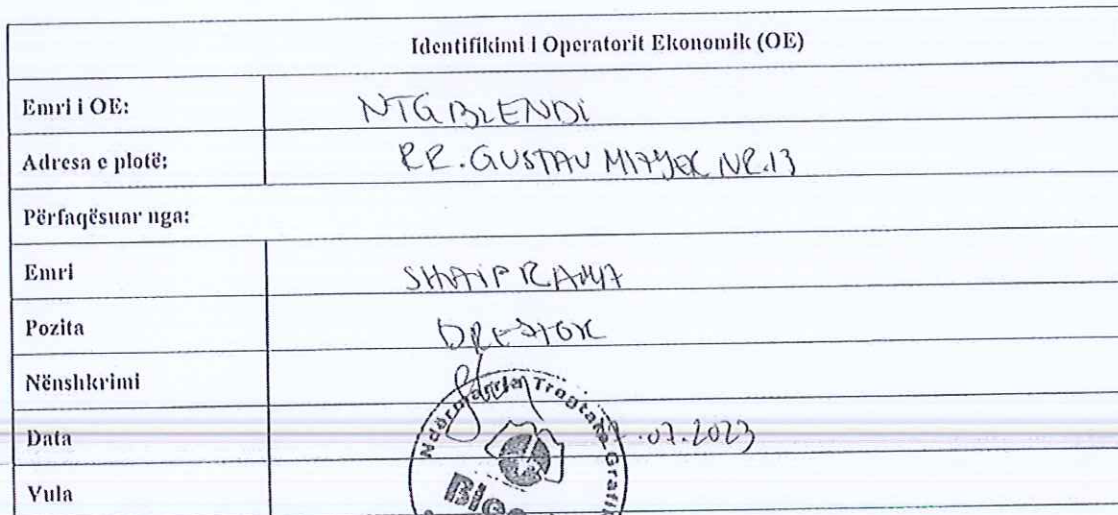 Identifikimi i Operatorit Ekonomik (OE)
Emri i OE: NTG BLENDI
Adresa e plotë: RR. GUSTAV MAYER NR.13
Përfaqësuar nga:
Emri SHAIP RAMA
Pozita DREJTOR
Nënshkrimi
Data .07.2023
Vula
Ndërmarrja Tregtare Grafike